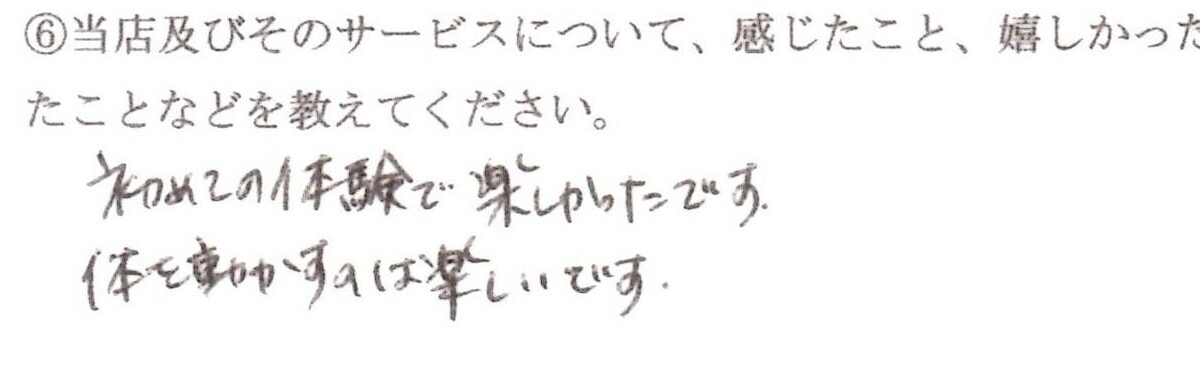 ⑥当店及びそのサービスについて、感じたこと、嬉しかった
たことなどを教えてください。
初めての体験で楽しかったです.
体を動かすのは楽しいです.